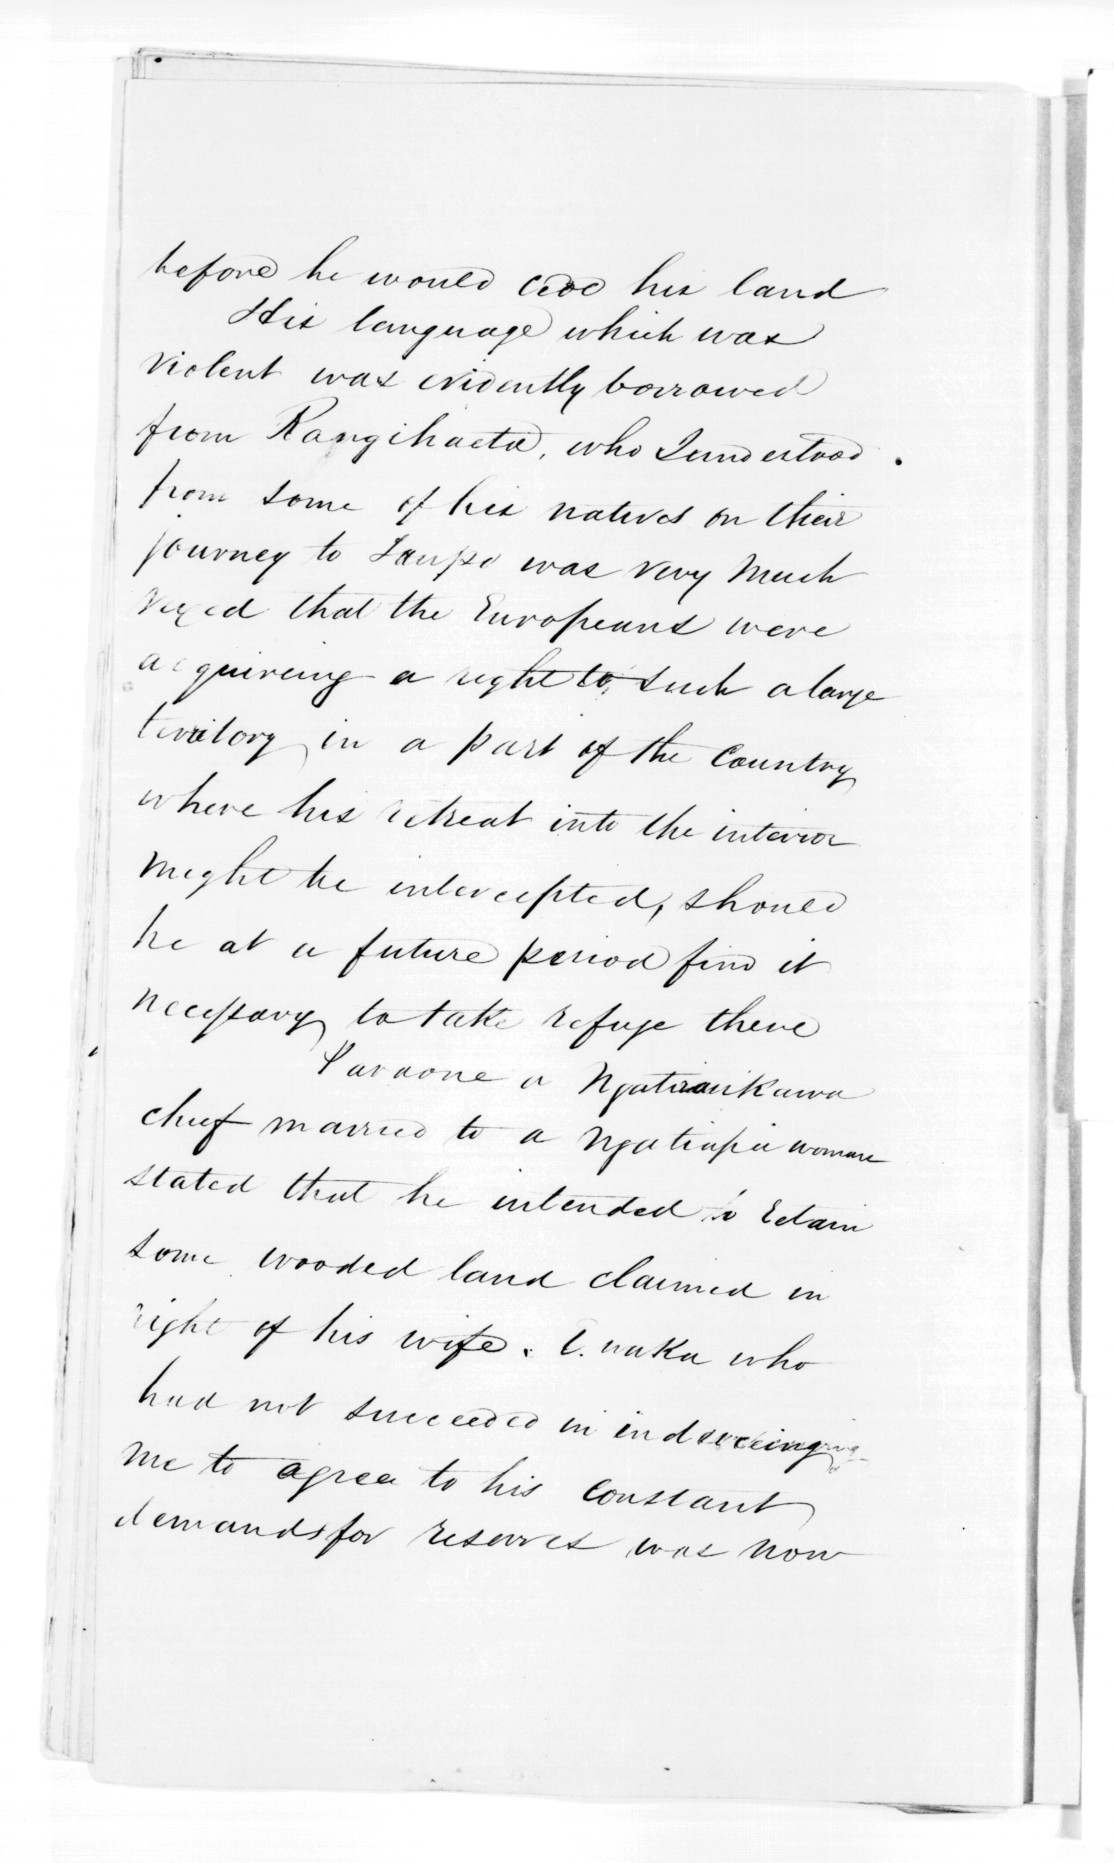 before he would cede his land
His language which was
violent was evidently borrowed
from Rangihaeta, who I understood
from some of his natives on their
journey to Taupo was very much
vexed that the Europeans were
acquireing a right to such a large
territory in a part of the Country
where his retreat into the interior
might be intercepted, should
he at a future period find it
necessary to take refuge there
Paraone a Ngatiraukawa
chief married to a Ngatiapa woman
stated that he intended to Retain
some wooded land claimed in
right of his wife. E. naka who
had not succeeded in
me to agree to his constant
demands for reserves was now